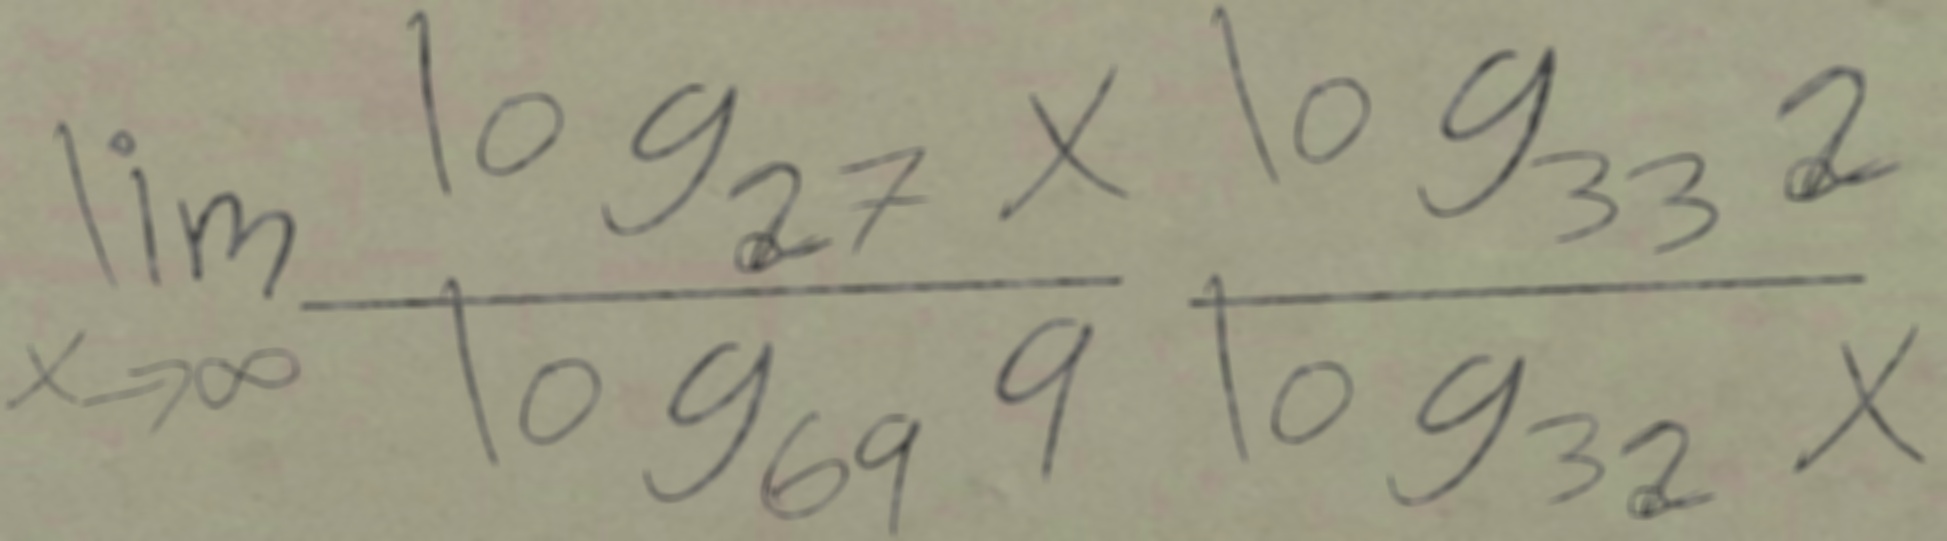 \lim_{x \to \infty} \frac{\log_{27} x}{\log_{69} 9} \frac{\log_{33} 2}{\log_{32} x}